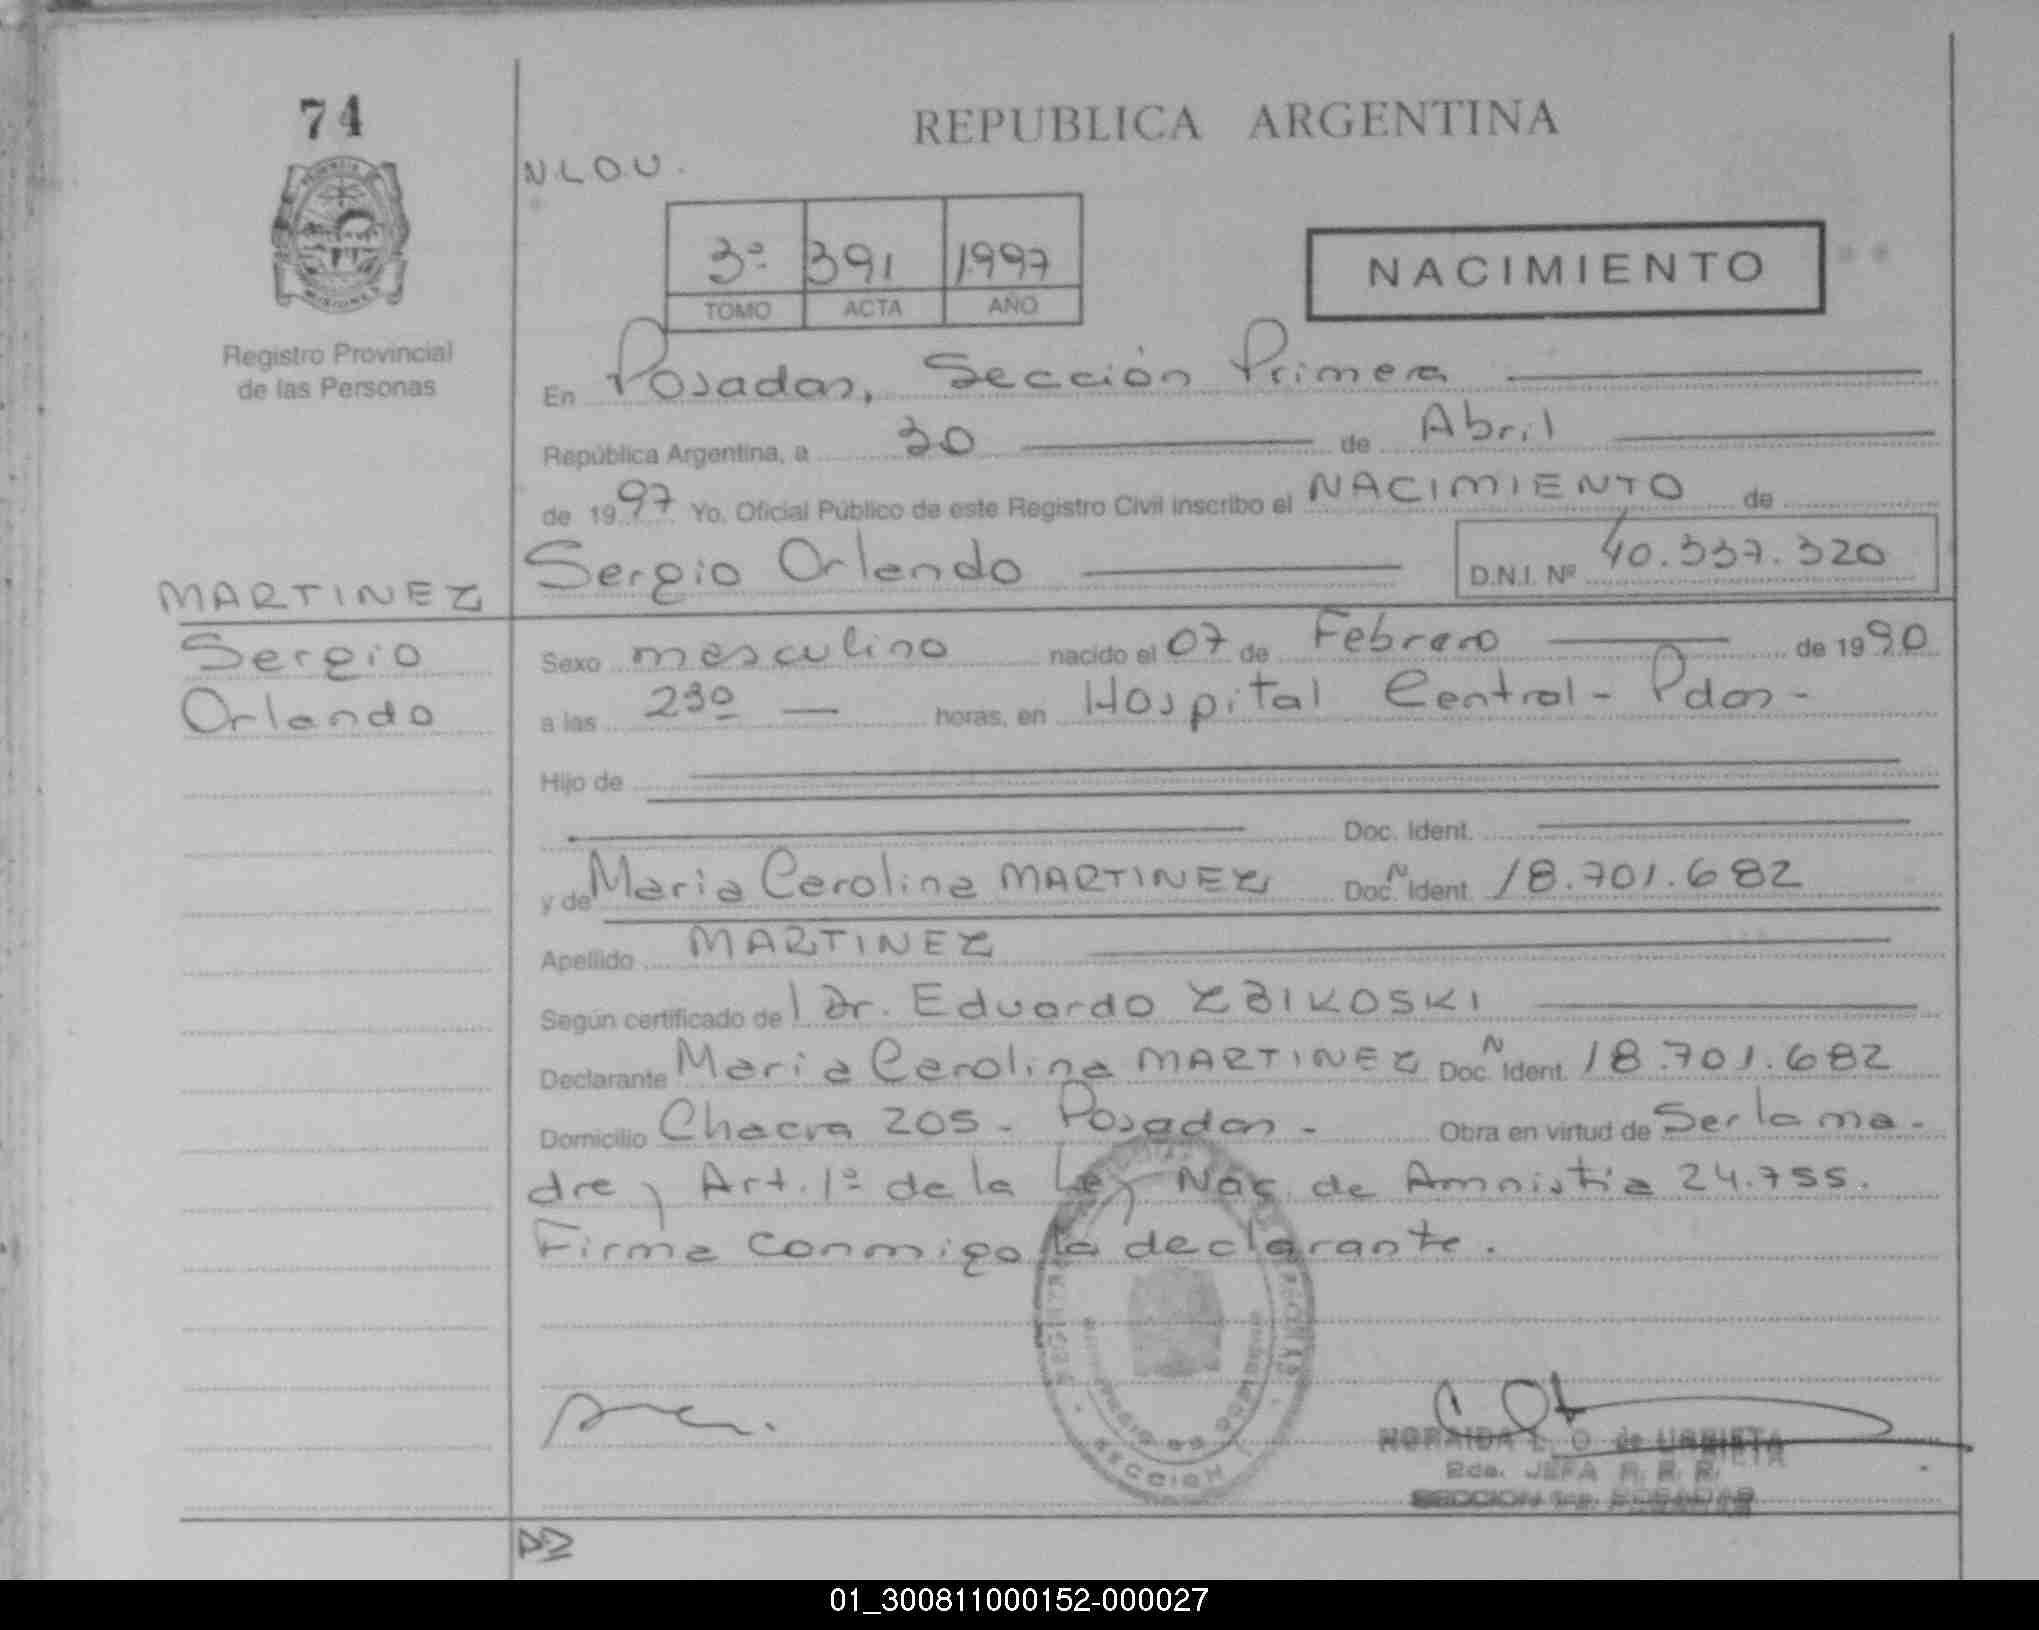 74
REPUBLICA ARGENTINA
N.L.O.U.
3º 391 1997
TOMO ACTA AÑO
NACIMIENTO
Registro Provincial
de las Personas
En Posadas, Sección Primera
República Argentina, a 30 de Abril
de 1997 Yo, Oficial Público de este Registro Civil inscribo el NACIMIENTO de
Sergio Orlando D.N.I. Nº 40.337.320
MARTINEZ
Sergio
Orlando
Sexo masculino nacido el 07 de Febrero de 1990
a las 23º horas, en Hospital Central - Pdas -
Hijo de
Doc. Ident.
y de Maria Carolina MARTINEZ Doc. N Ident. 18.701.682
Apellido MARTINEZ
Según certificado del Dr. Eduardo ZBIKOSKI
Declarante Maria Carolina MARTINEZ Doc. N Ident. 18.701.682
Domicilio Chacra 205 - Posadas - Obra en virtud de Ser la ma-
dre y Art. 1º de la Ley Nac. de Amnistia 24.755.
Firma conmigo la declarante.
NORAIDA L. O. de URRIETA
2da. JEFA R. P. P.
SECCION 1ra. POSADAS
SECCION
01_300811000152-000027